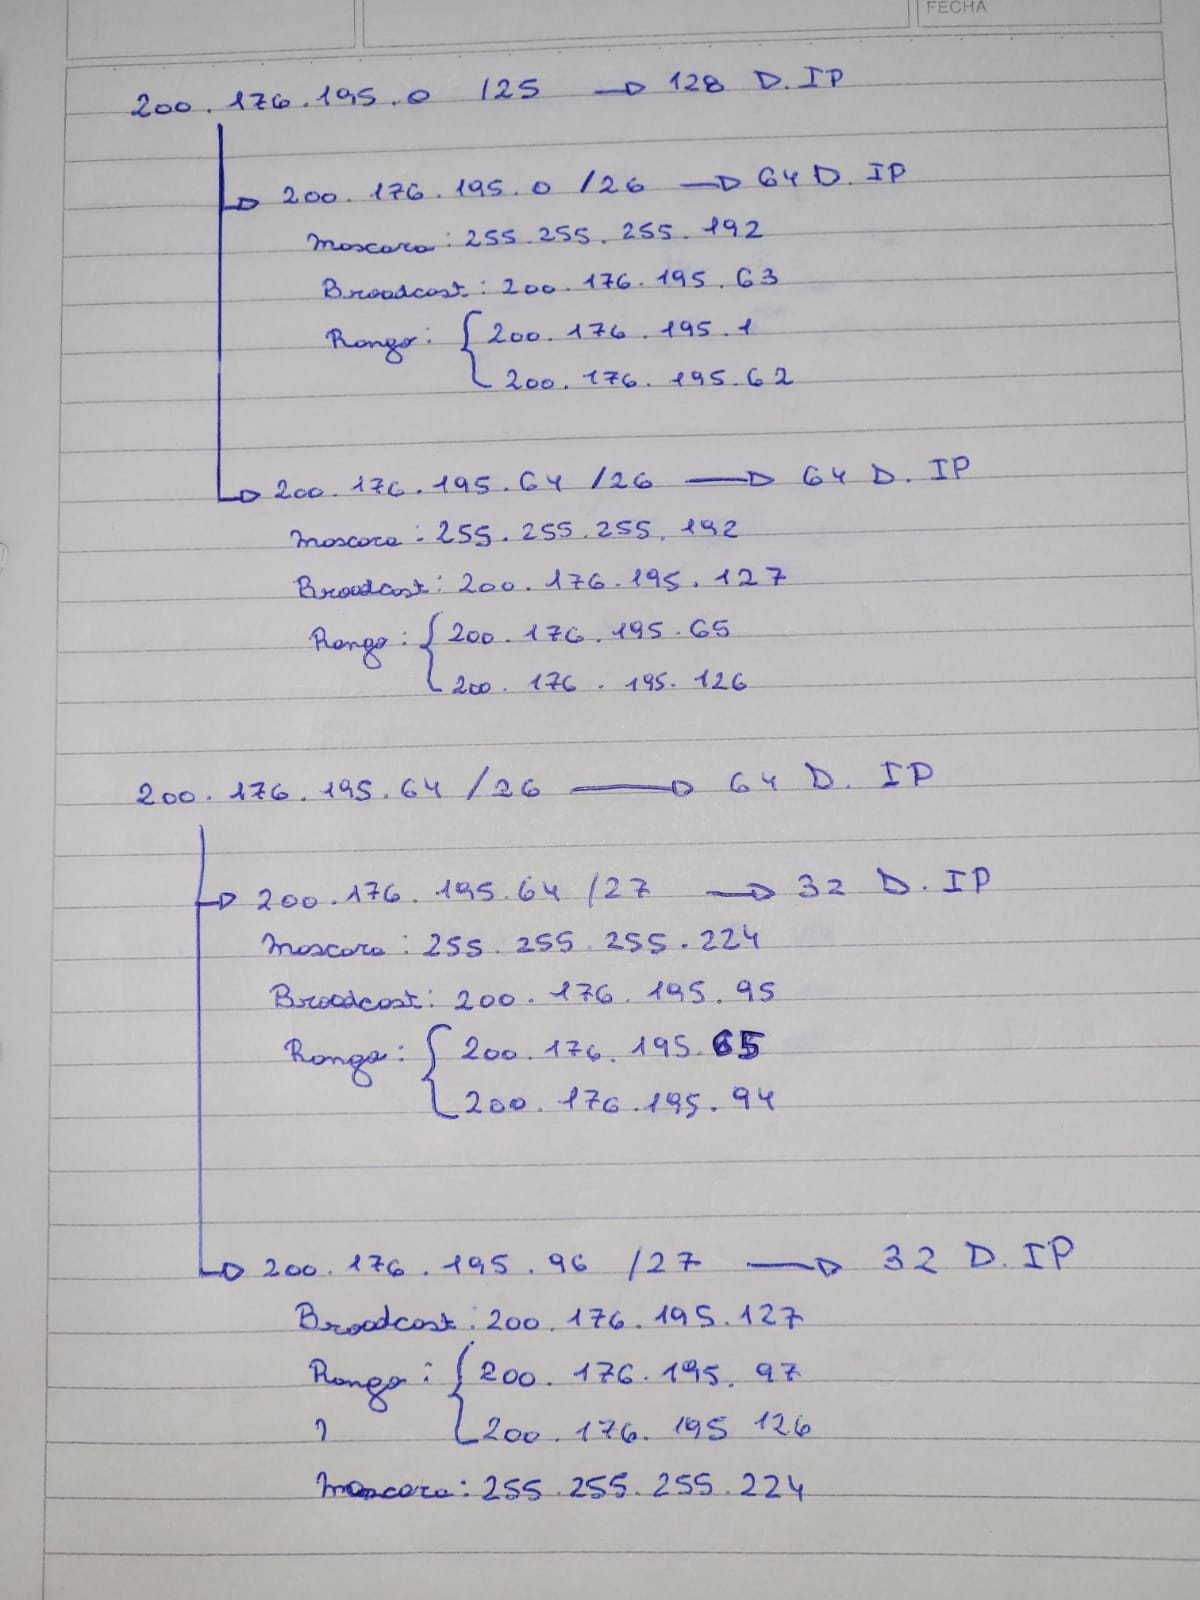 FECHA
200.176.195.0 /25 → 128 D.IP
200.176.195.0 /26 → 64 D.IP
Mascara: 255.255.255.192
Broadcast: 200.176.195.63
Rango: { 200.176.195.1
200.176.195.62
200.176.195.64 /26 → 64 D.IP
Mascara: 255.255.255.192
Broadcast: 200.176.195.127
Rango: { 200.176.195.65
200.176.195.126
200.176.195.64 /26 → 64 D.IP
200.176.195.64 /27 → 32 D.IP
Mascara: 255.255.255.224
Broadcast: 200.176.195.95
Rango: { 200.176.195.65
200.176.195.94
200.176.195.96 /27 → 32 D.IP
Broadcast: 200.176.195.127
Rango: { 200.176.195.97
200.176.195 126
Mascara: 255.255.255.224